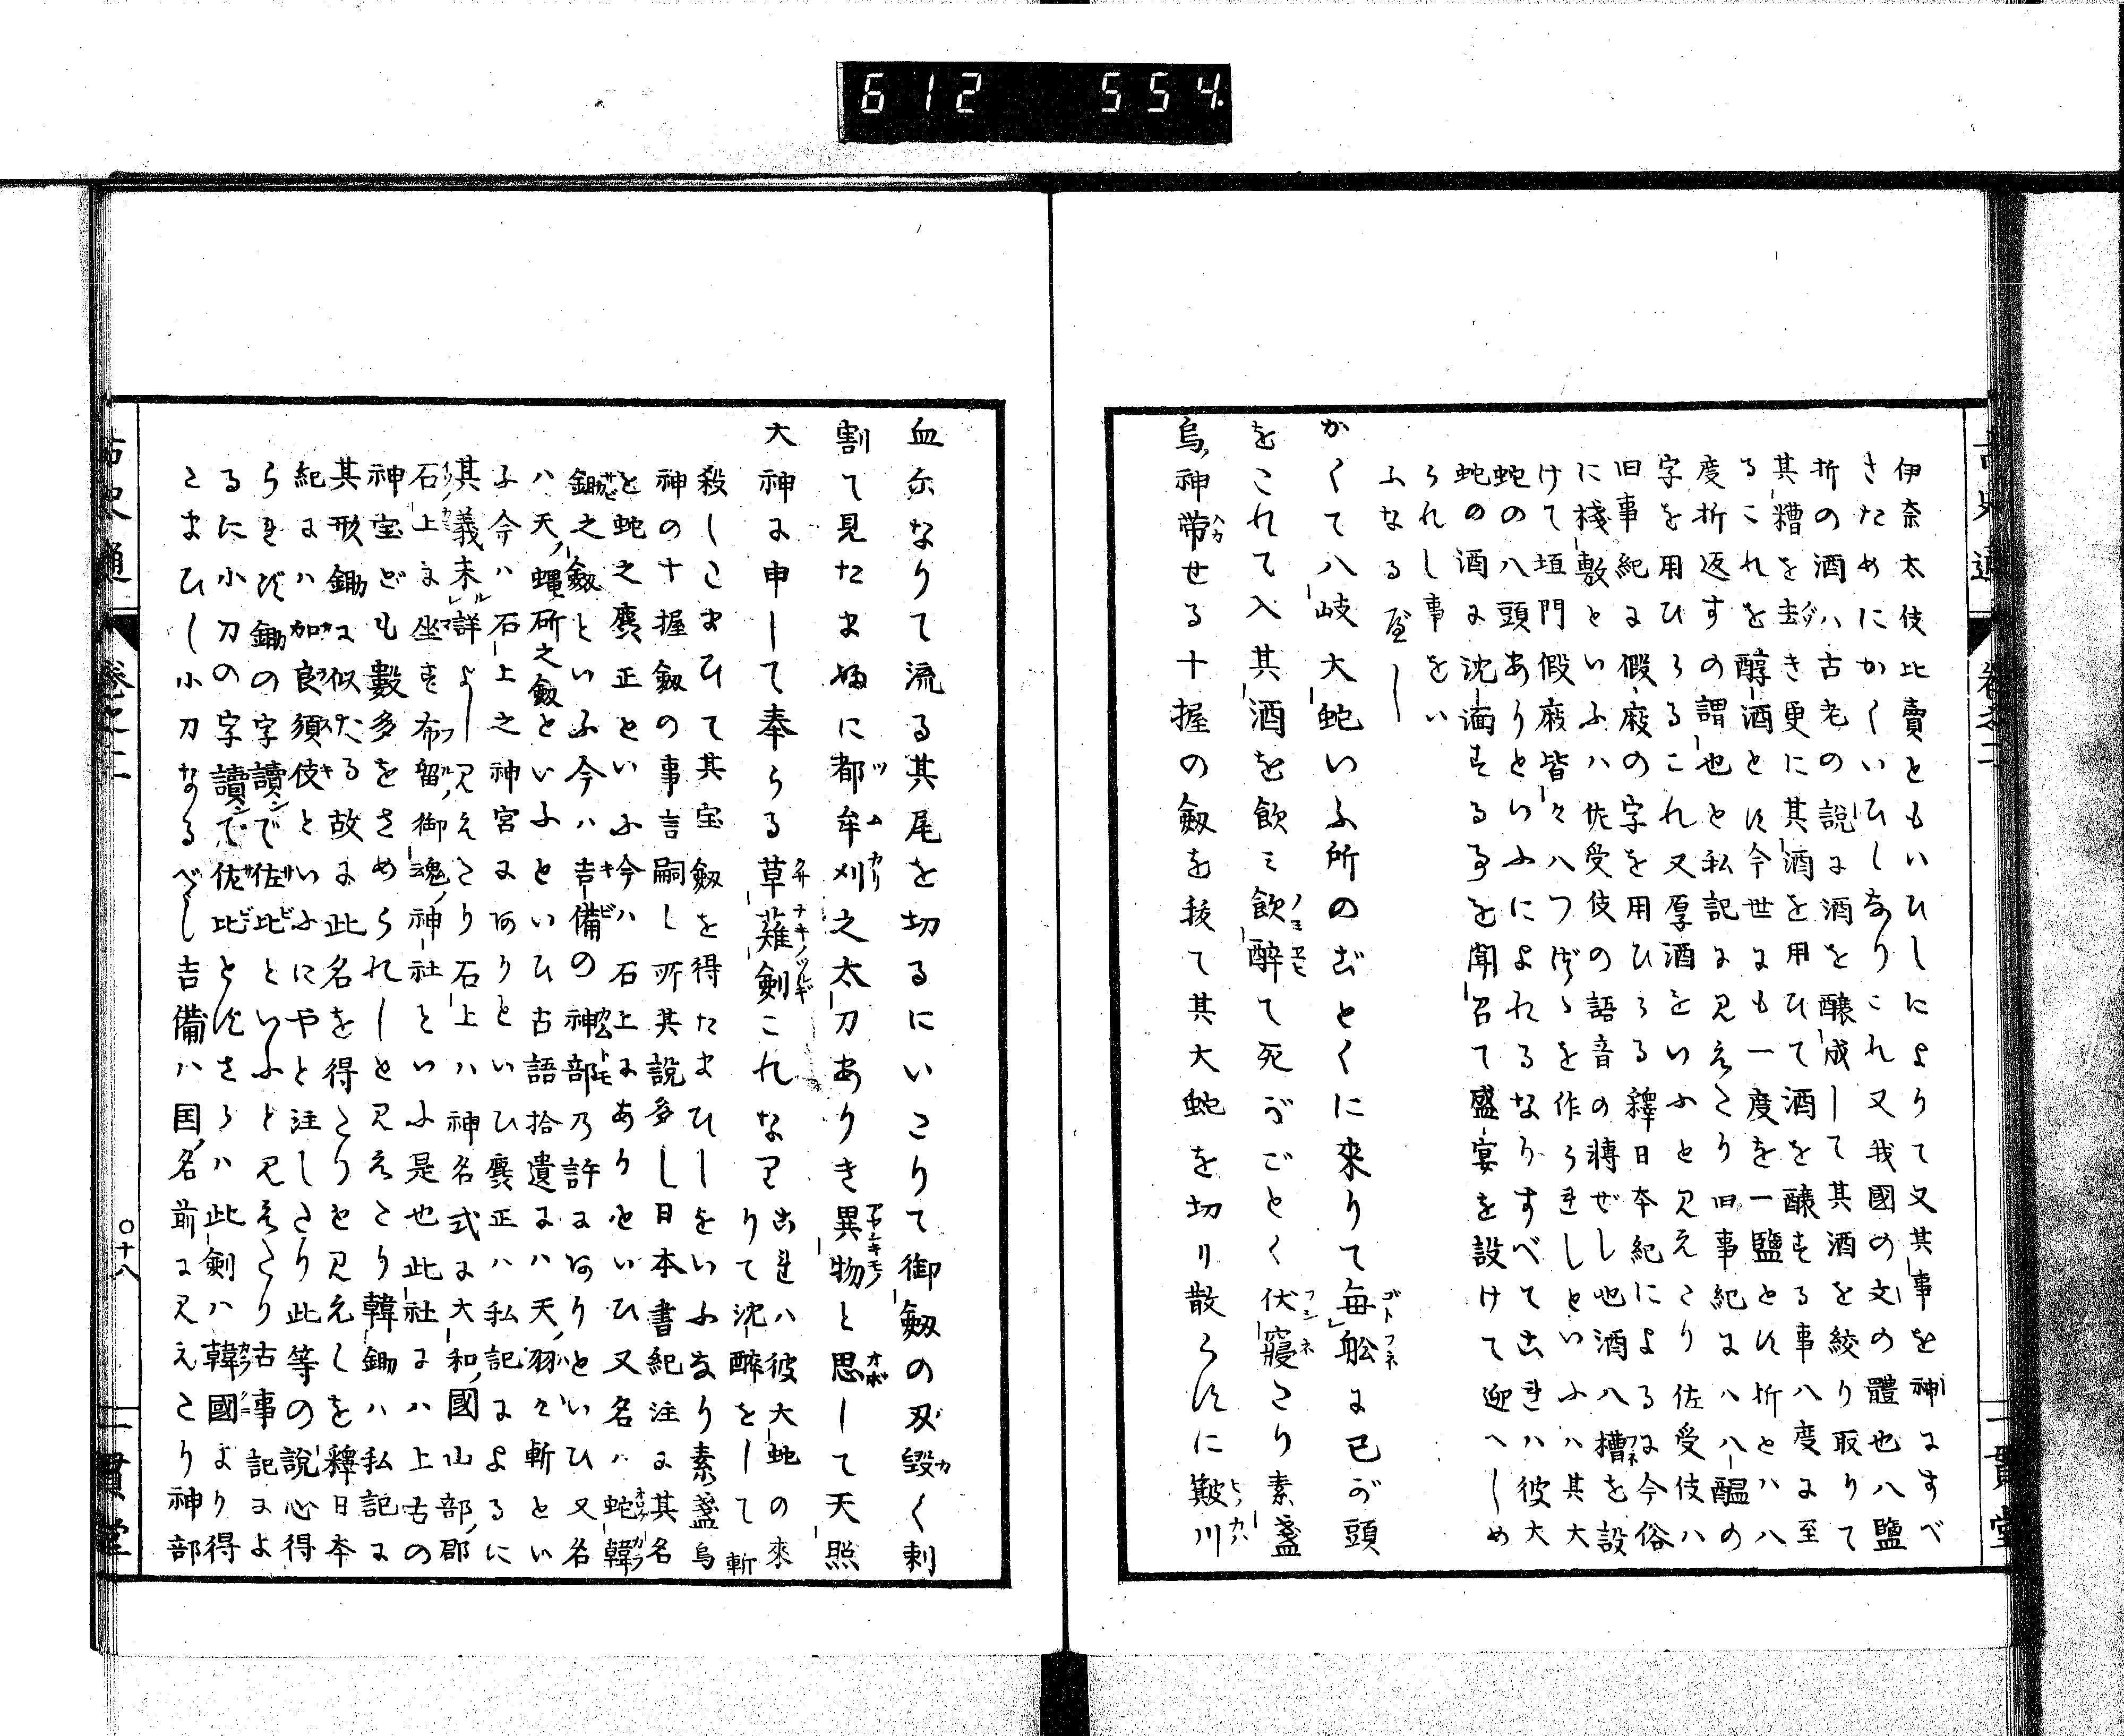 612 554.
古史通 卷之二
一貫堂
伊奈太伎比賣ともいひしによりて又其事を神にすべ
きためにかくいひしなりこれ又我國の文の體也八鹽
折の酒ハ古老の説に酒を醸成して其酒を絞り取りて
其糟を去き更に其酒を用ひて酒を醸する事八度に至
るこれを醇酒とす今世にも一度を一鹽とす折とハ八
度折返すの謂也と私記に見えたり旧事紀にハ八醞の
字を用ひらるこれ又厚酒をいふと見えたり佐受伎ハ
旧事紀に假庪の字を用ひらる釋日本紀によるに今俗
に棧敷といふハ佐受伎の語音の轉ぜし也酒八槽を設
けて垣門假庪皆々八つづゝを作られしといふハ其大
蛇の八頭ありといふによれるなりすべてこれハ彼大
蛇の酒に沈湎するを聞召て盛宴を設けて迎へしめ
られし事をい
ふなる歟し
かくて八岐大蛇いふ所のごとくに來りて毎舩に已が頭
をこれて入其酒を飲ミ飲醉て死がごとく伏寢たり素盞
烏神帶せる十握の劔を抜て其大蛇を切リ散らすに簸川
血尓なりて流る其尾を切るにいたりて御劔の刄毀く剌
割て見たまゐに都牟刈之太刀ありき異物と思して天照
大神に申して奉らる草薙剣これなり これハ彼大蛇の來
りて沈醉をして斬
殺したまひて其宝劔を得たまひしをいふなり素盞烏
神の十握劔の事言嗣し所其説多し日本書紀注に其名
を蛇之麁正といふ今ハ石上にありといひ又名ハ蛇韓
鋤之劔といふ今ハ吉備の神部乃許にありといひ又名
ハ天蝿斫之劔といふといひ古語拾遺にハ天羽々斬とい
ふ今ハ石上之神宮にありといひ麁正ハ私記によるに
其義未詳よし見えたり石上ハ神名式に大和國山部郡
石上に坐す布留御魂神社といふ是也此社にハ上古の
神宝ども數多をさめられしと見えたり韓鋤ハ私記に
其形鋤に似たる故に此名を得たりと見えしを釋日本
紀にハ加良須伎といふにやと注したり此等の説心得
られず鋤の字讀で佐比といふと見えたり古事記によ
るに小刀の字讀で佐比とすさらハ此剣ハ韓國より得
たまひし小刀なるべし吉備ハ国名前に見えたり神部
古史通 卷之二 〇十八 一貫堂